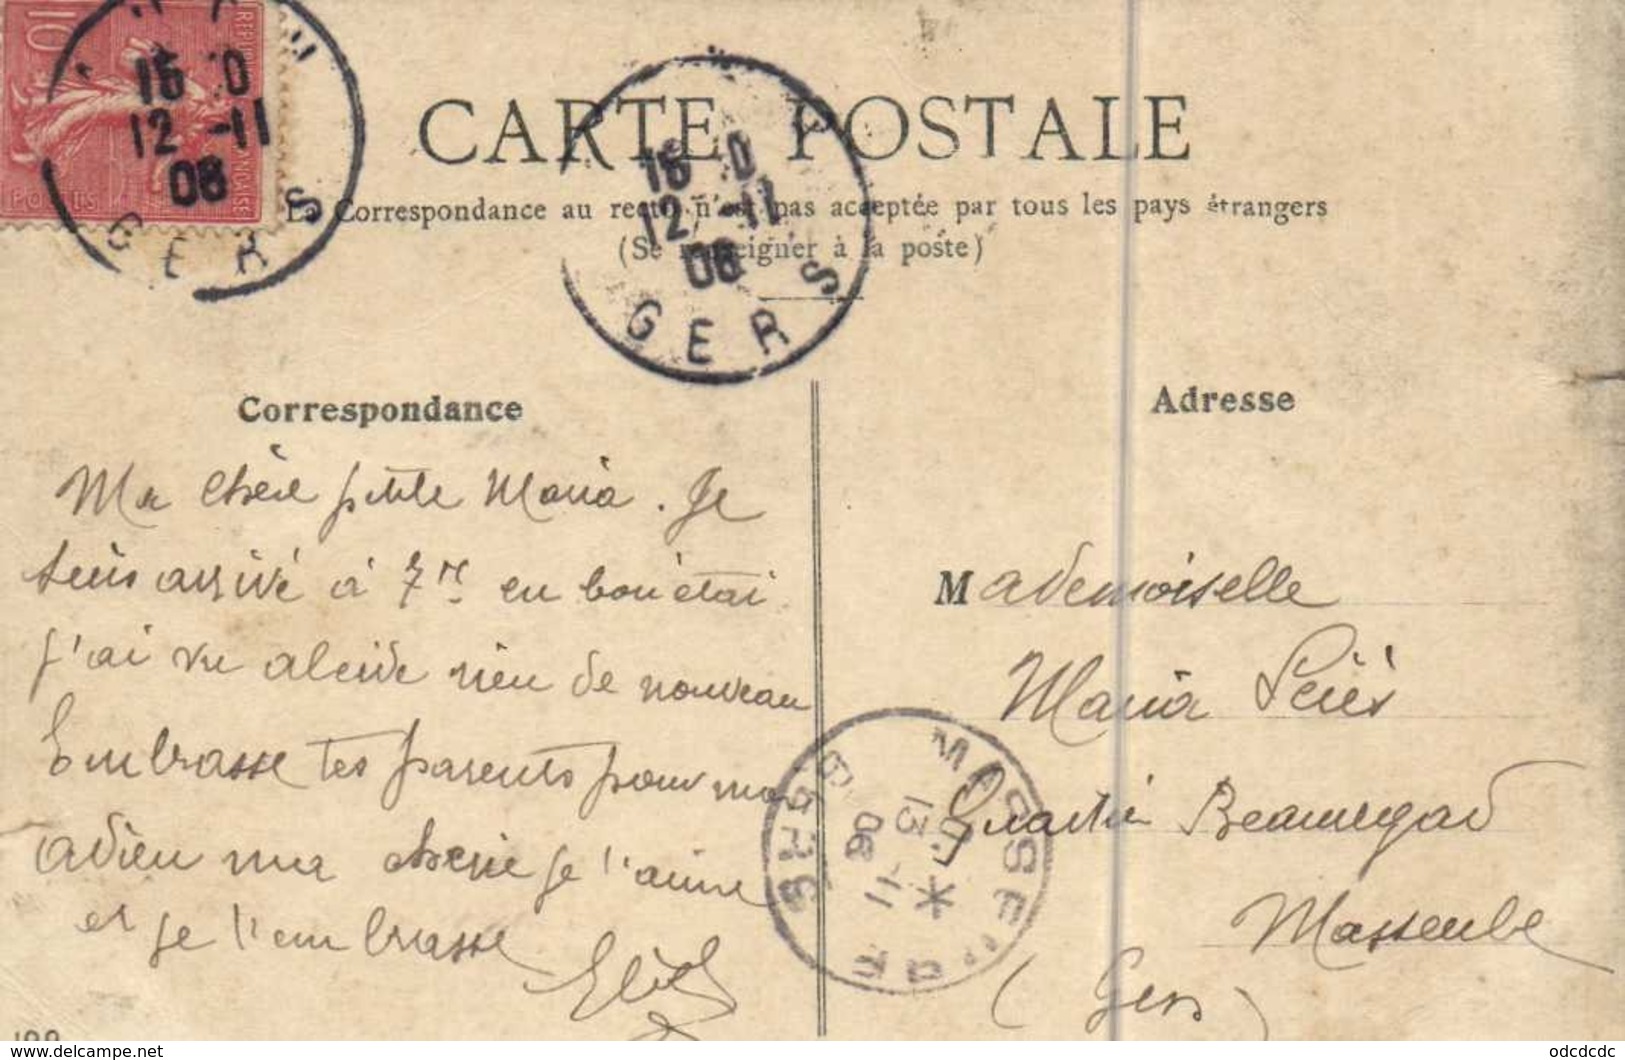 10
POSTES
15 0
12 -11
06
GERS
CARTE POSTALE
15 0
12 -11
06
GERS
La Correspondance au recto n'est pas acceptée par tous les pays étrangers
(Se renseigner à la poste)
Correspondance
Ma chère petite Maria. Je
suis arrivé à 7 en bon état
j'ai vu alcide rien de nouveau
Embrasse tes parents pour moi
adieu ma cherie je t'aime
et je t'embrasse
Adresse
Mademoiselle
Maria
Quartié Beauregard
Masseube
(Gers)
MASSEUBE
13 -11
06
GERS
odcdcdc